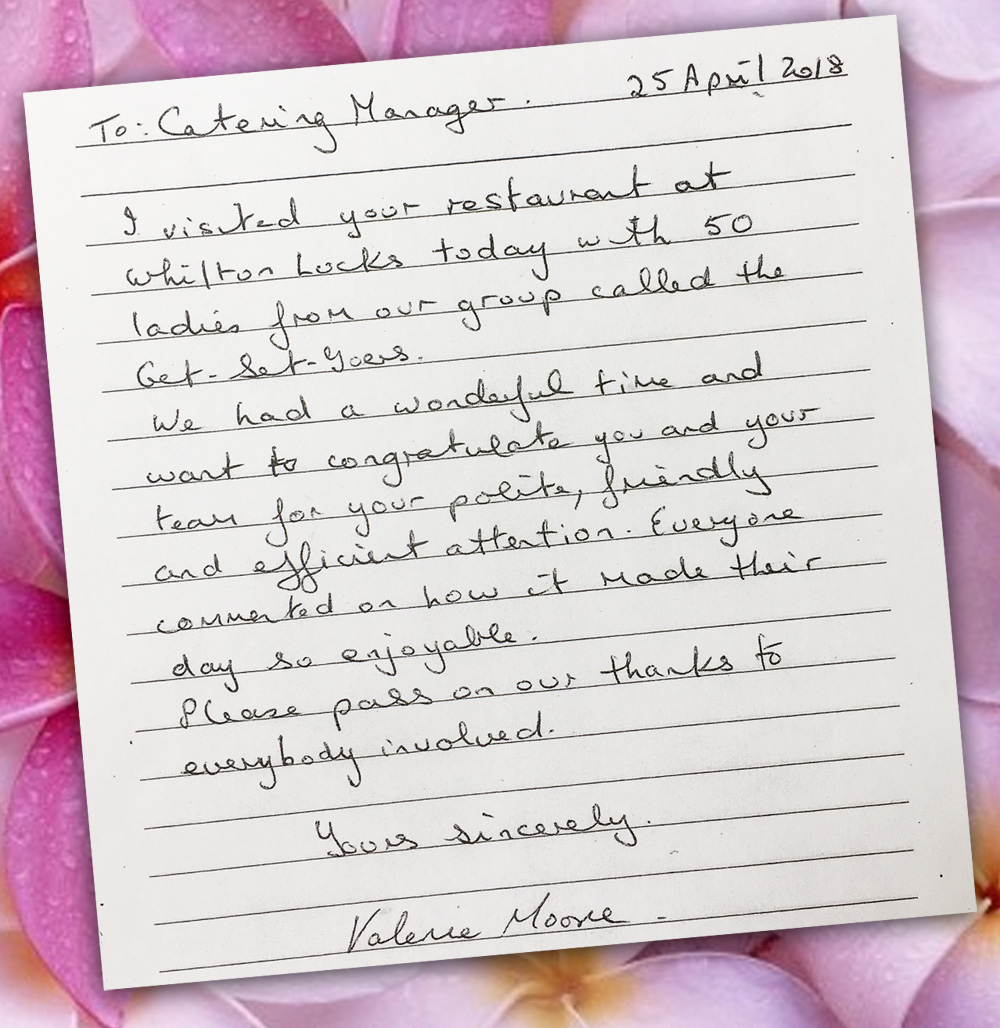 To: Catering Manager. 25 April 2018
I visited your restaurant at
Whilton Locks today with 50
ladies from our group called the
Get-Set-Goers.
We had a wonderful time and
want to congratulate you and your
team for your polite, friendly
and efficient attention. Everyone
commented on how it made their
day so enjoyable.
Please pass on our thanks to
everybody involved.
Yours sincerely.
Valerie Moore